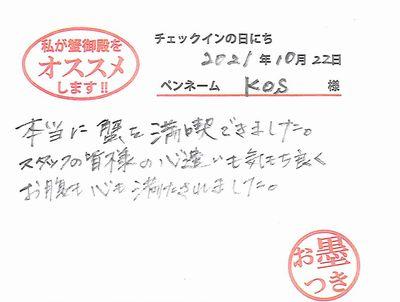 私が蟹御殿を
オススメ
します!!
チェックインの日にち
2021年10月22日
ペンネーム KOS 様
本当に蟹を満喫できました。
スタッフの皆様の心遣いも気もち良く
お腹も心も満たされました。
お墨
つき